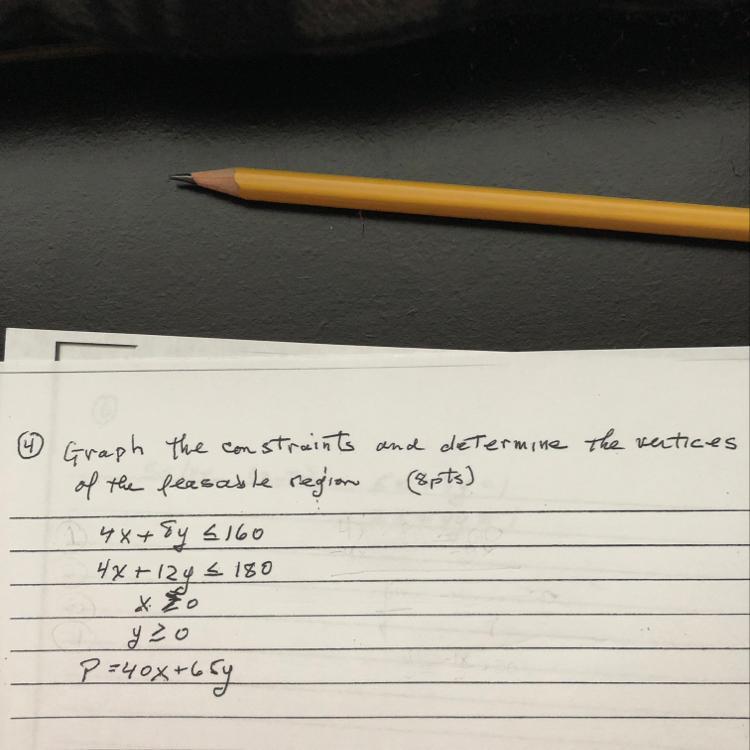 ④ Graph the constraints and determine the vertices
of the feasable region (8pts)
4x + 8y ≤ 160
4x + 12y ≤ 180
x ≥ 0
y ≥ 0
P = 40x + 65y